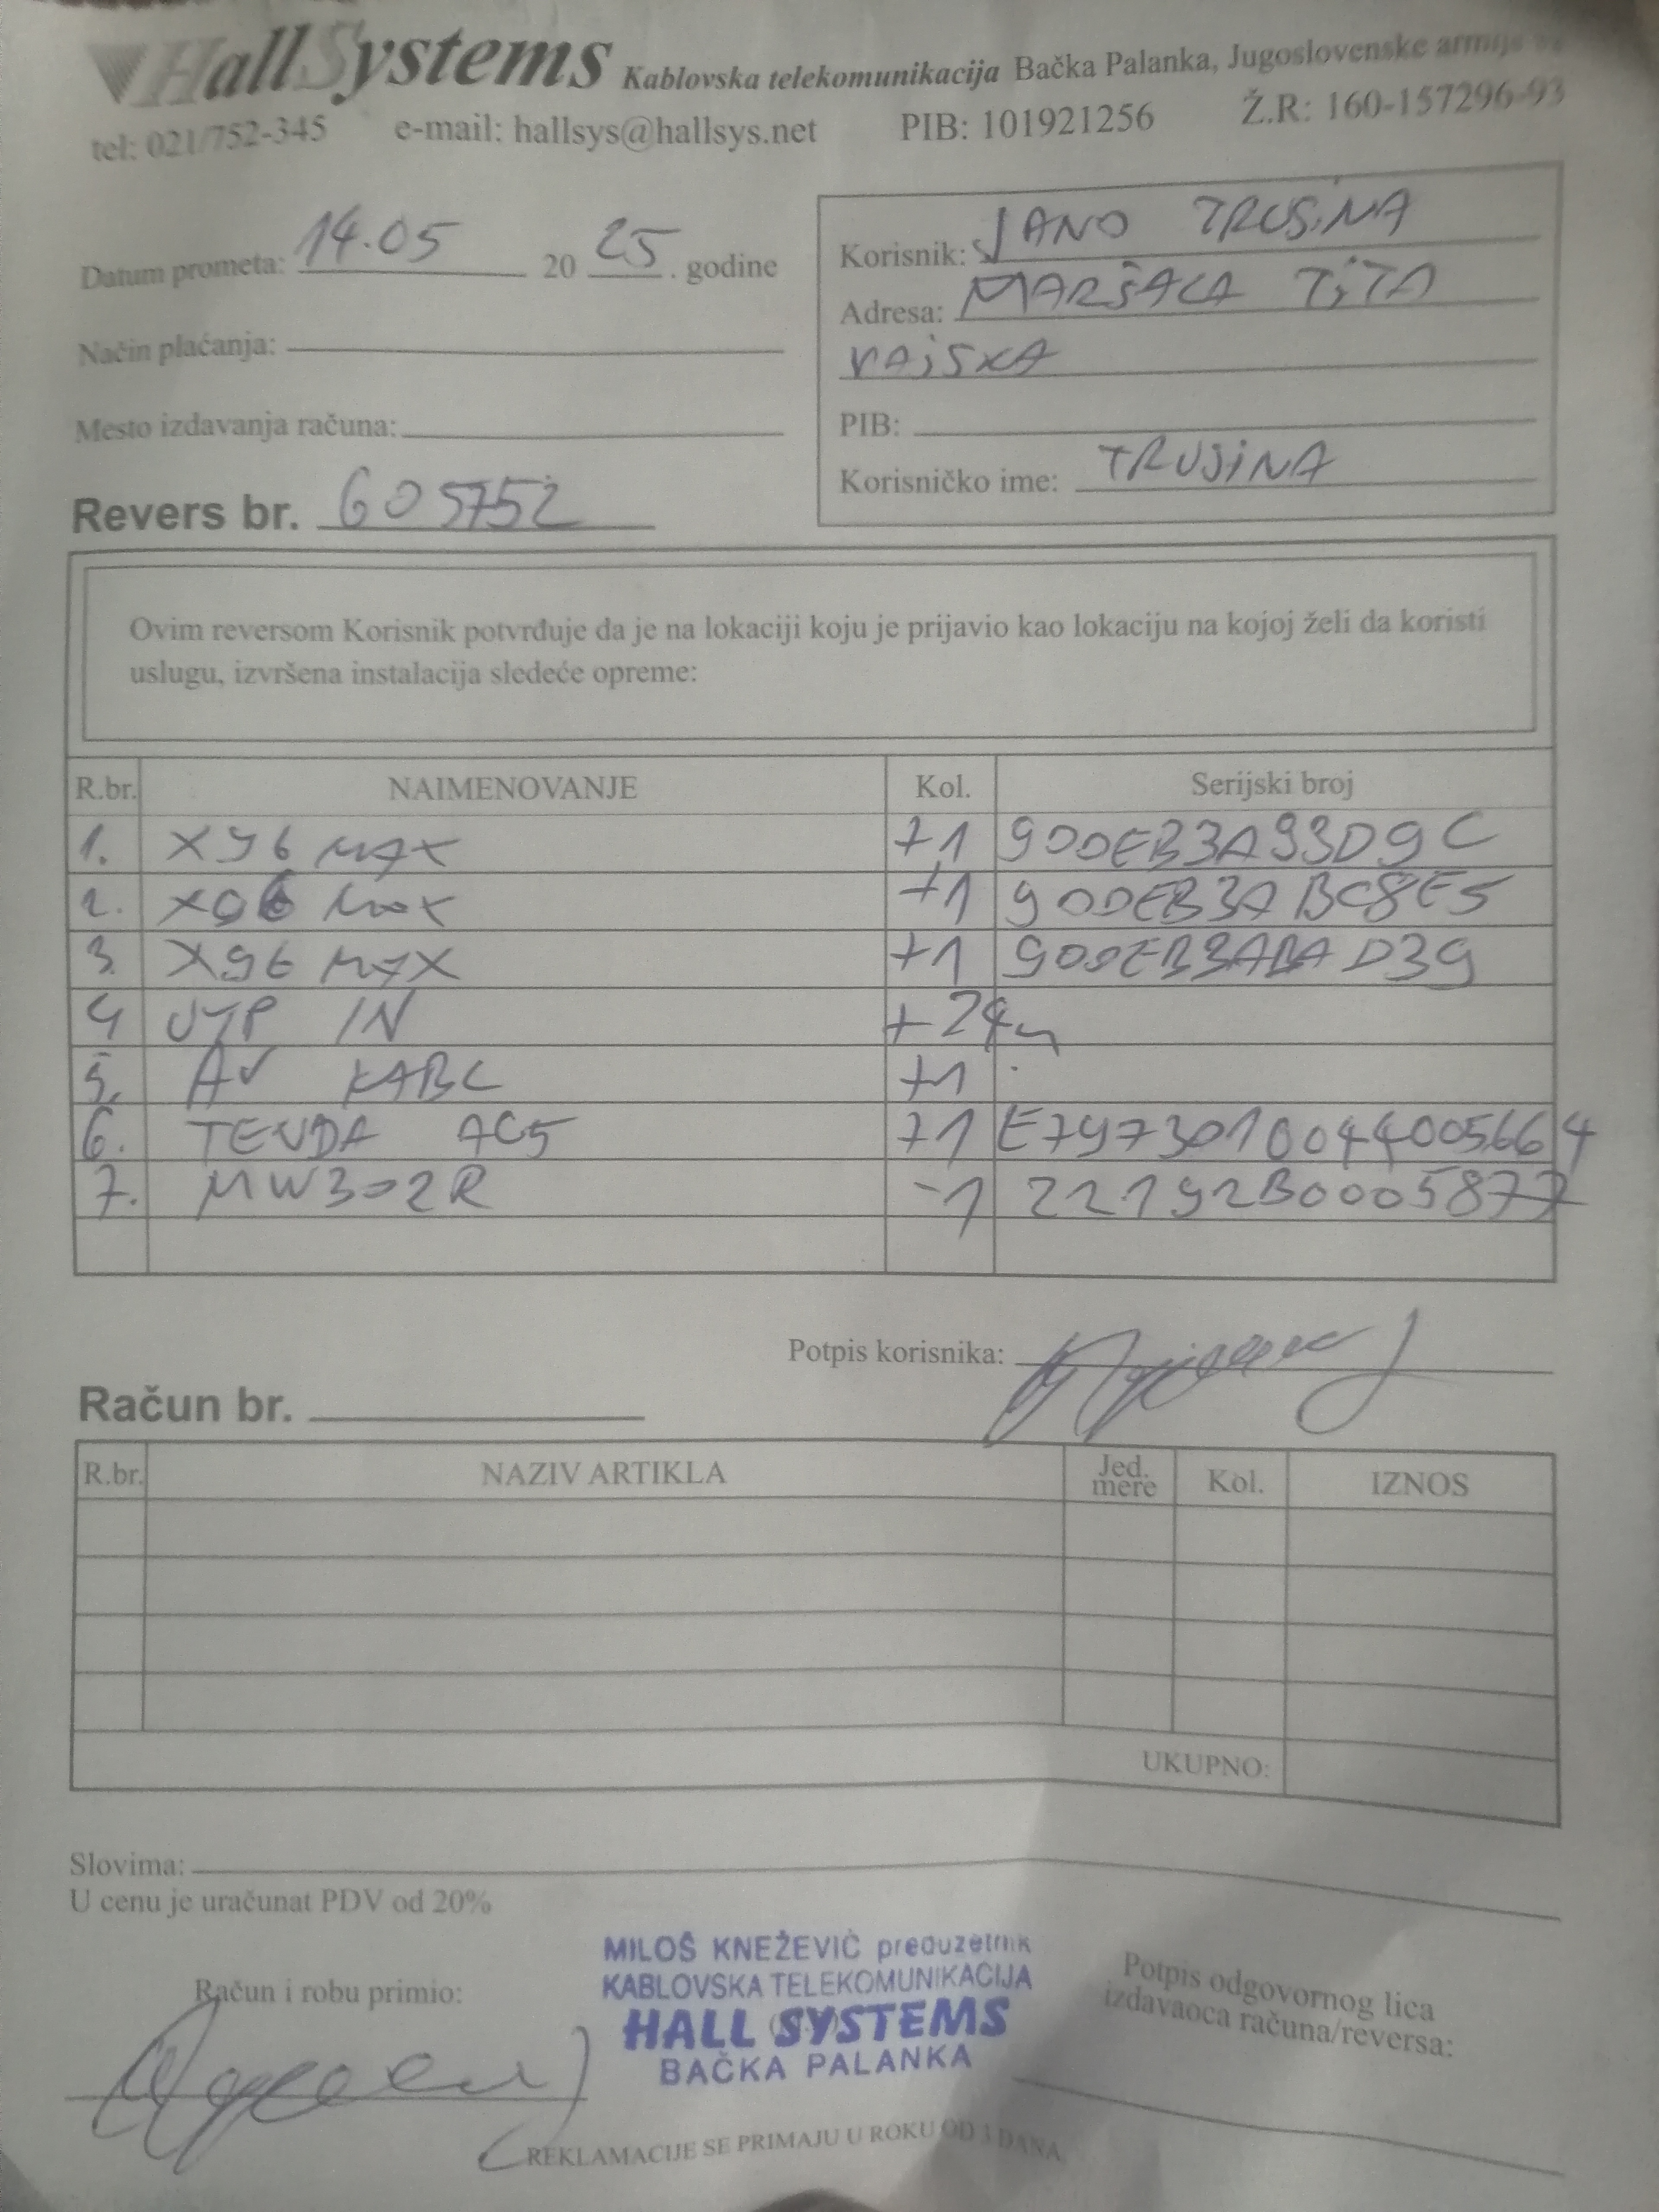 HallSystems Kablovska telekomunikacija Bačka Palanka, Jugoslovenske armije
tel: 021/752-345 e-mail: hallsys@hallsys.net PIB: 101921256 Ž.R: 160-157296-93
Datum prometa: 14.05 2025. godine
Korisnik: JANO TRUSINA
Adresa: MARŠALA TITA
VAJSKA
Način plaćanja:
Mesto izdavanja računa:
PIB:
Korisničko ime: TRUSINA
Revers br. 605752
Ovim reversom Korisnik potvrđuje da je na lokaciji koju je prijavio kao lokaciju na kojoj želi da koristi
uslugu, izvršena instalacija sledeće opreme:
R.br. NAIMENOVANJE Kol. Serijski broj
1. X96 MAX +1 90DEB3A93D9C
2. X96 MAX +1 90DEB3ABC8E5
3. X96 MAX +1 90DEB3ABAD39
4 UTP IN +24m
5. AV KABL +1
6. TENDA AC5 +1 E7973010044005664
7. MW302R -1 22192B0005877
Potpis korisnika:
Račun br.
R.br. NAZIV ARTIKLA Jed. mere Kol. IZNOS
UKUPNO:
Slovima:
U cenu je uračunat PDV od 20%
Račun i robu primio:
MILOŠ KNEŽEVIĆ preduzetnik
KABLOVSKA TELEKOMUNIKACIJA
HALL SYSTEMS
BAČKA PALANKA
Potpis odgovornog lica
izdavaoca računa/reversa:
REKLAMACIJE SE PRIMAJU U ROKU OD 3 DANA